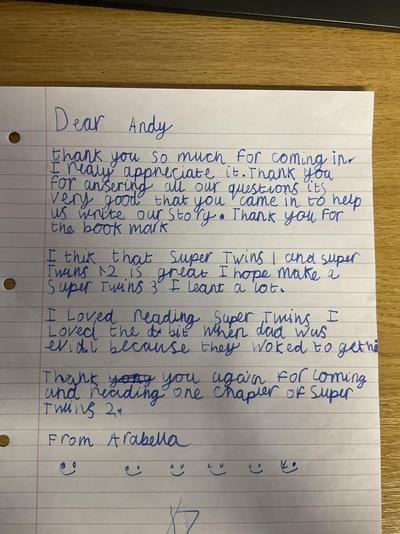 Dear Andy
thank you so much for coming in.
I realy appreciate it. Thank you
for ansering all our questions its
very good that you came in to help
us write our story. Thank you for
the book mark
I thik that Super Twins 1 and super
Twins 2 is great I hope make a
Super Twins 3 I leant a lot.
I Loved reading Super Twins I
Loved the bit when dad was
evill because they woked to
Thank you again for coming
and reading one chapter of Super
Twins 2.
From Arabella